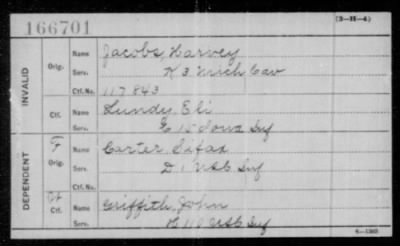 166701
(3-H-4)
INVALID
Orig.
Name Jacobs, Harvey
Serv. K 3 Mich Cav
Ctf. No. 117843
Ctf.
Name Lundy, Eli
Serv. G 15 Iowa Inf
DEPENDENT
F
Orig.
Name Carter Sifax
Serv. D 1 USC Inf
Ctf. No.
W
Ctf.
Name Griffith, John
Serv. 110 USC Inf